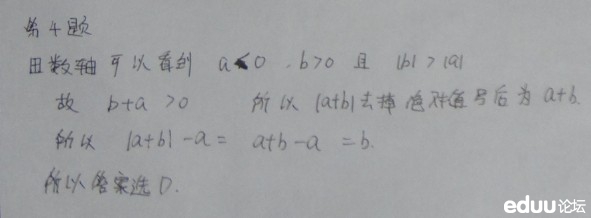 第4题
由数轴可以看到 a<0, b>0 且 |b|>|a|
故 b+a >0 所以 |a+b|去掉绝对值号后为 a+b.
所以 |a+b|-a= a+b-a =b.
所以答案选D.
eduu论坛